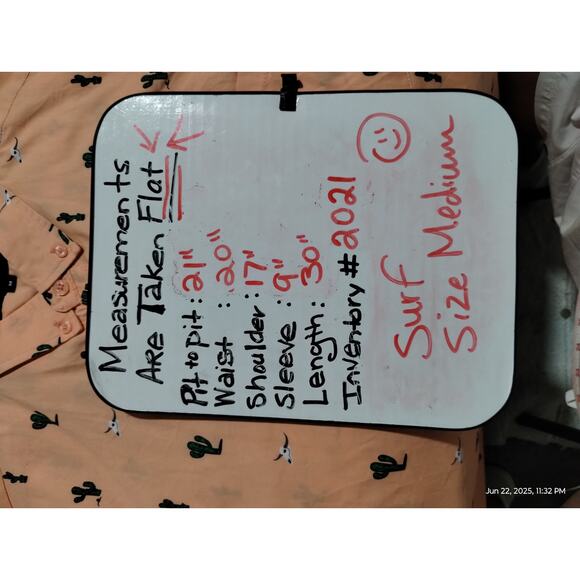 Measurements
Are Taken Flat
Pit to pit: 21"
Waist : 20"
Shoulder: 17"
Sleeve : 9"
Length: 30"
Inventory # 2021
Surf
Size Medium
M
Jun 22, 2025, 11:32 PM